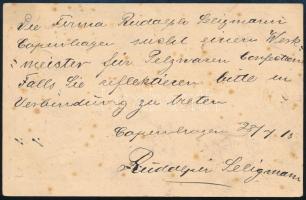 Die Firma Rudolph Seligmann
Copenhagen sucht einen Werk-
meister für Pelzwaren
Falls Sie reflektieren bitte in
Verbindung zu treten
Copenhagen
Rudolph Seligmann